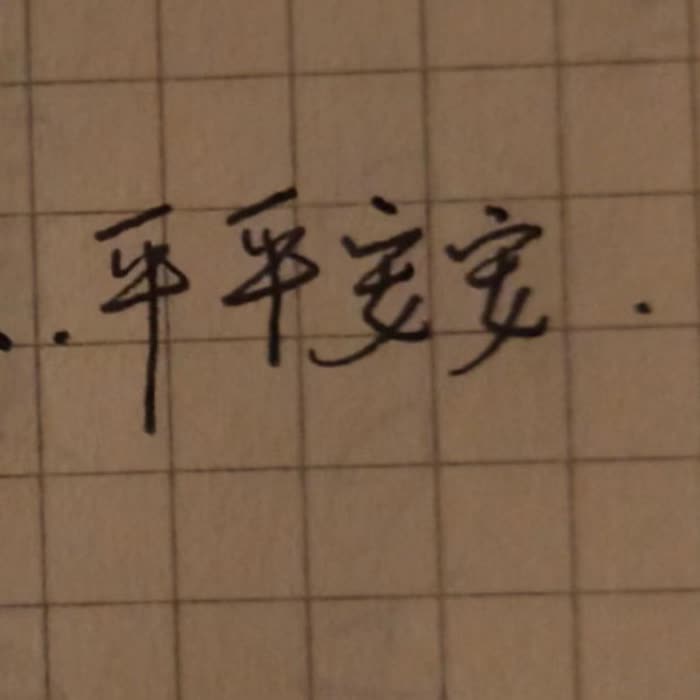 ..平平安安.